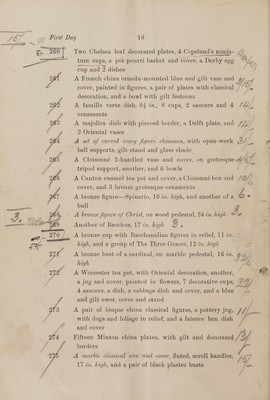 First Day 18
260 Two Chelsea leaf decorated plates, 4 Copeland's minia-
ture cups, a pot pourri basket and cover, a Derby egg
cup and 2 dishes
261 A French china ormolu-mounted blue and gilt vase and
cover, painted in figures, a pair of plates with classical
decoration, and a bowl with gilt festoons
262 A famille verte dish, 8½ in., 8 cups, 2 saucers and 4 14/-
ornaments
263 A majolica dish with pierced border, a Delft plate, and 14/-
2 Oriental vases
264 A set of carved ivory figure chessmen, with open-work
ball supports, gilt stand and glass shade
265 A Cloisonné 2-handled vase and cover, on grotesque
tripod support, another, and 6 bowls
266 A Canton enamel tea pot and cover, a Cloisonné box and
cover, and 3 bronze grotesque ornaments
267 A bronze figure—Spinario, 10 in. high, and another of a
bull
268 A bronze figure of Christ, on wood pedestal, 24 in. high
3. 269 Another of Bacchus, 17 in. high
270 A bronze cup with Bacchanalian figures in relief, 11 in.
high, and a group of The Three Graces, 12 in. high
271 A bronze bust of a cardinal, on marble pedestal, 16 in.
high
272 A Worcester tea pot, with Oriental decoration, another,
a jug and cover, painted in flowers, 7 decorative cups,
4 saucers, a dish, a cabbage dish and cover, and a blue
and gilt ewer, cover and stand
273 A pair of bisque china classical figures, a pottery jug, 11/-
with dogs and foliage in relief, and a faience hen dish
and cover
274 Fifteen Minton china plates, with gilt and decorated
borders
275 A marble classical urn and cover, fluted, scroll handles,
17 in. high, and a pair of black plaster busts